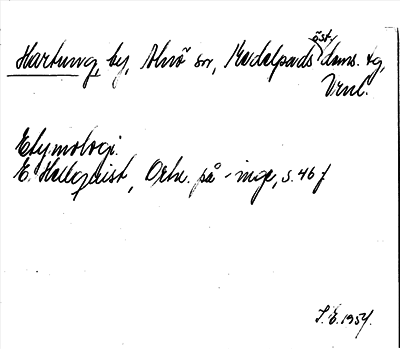 Hartung, by, Alnö sn, Medelpads östra doms. tg,
Vrnl.
Etymologi.
E. Hellquist, Ortn. på -inge, s. 46 f
S.E. 1954.